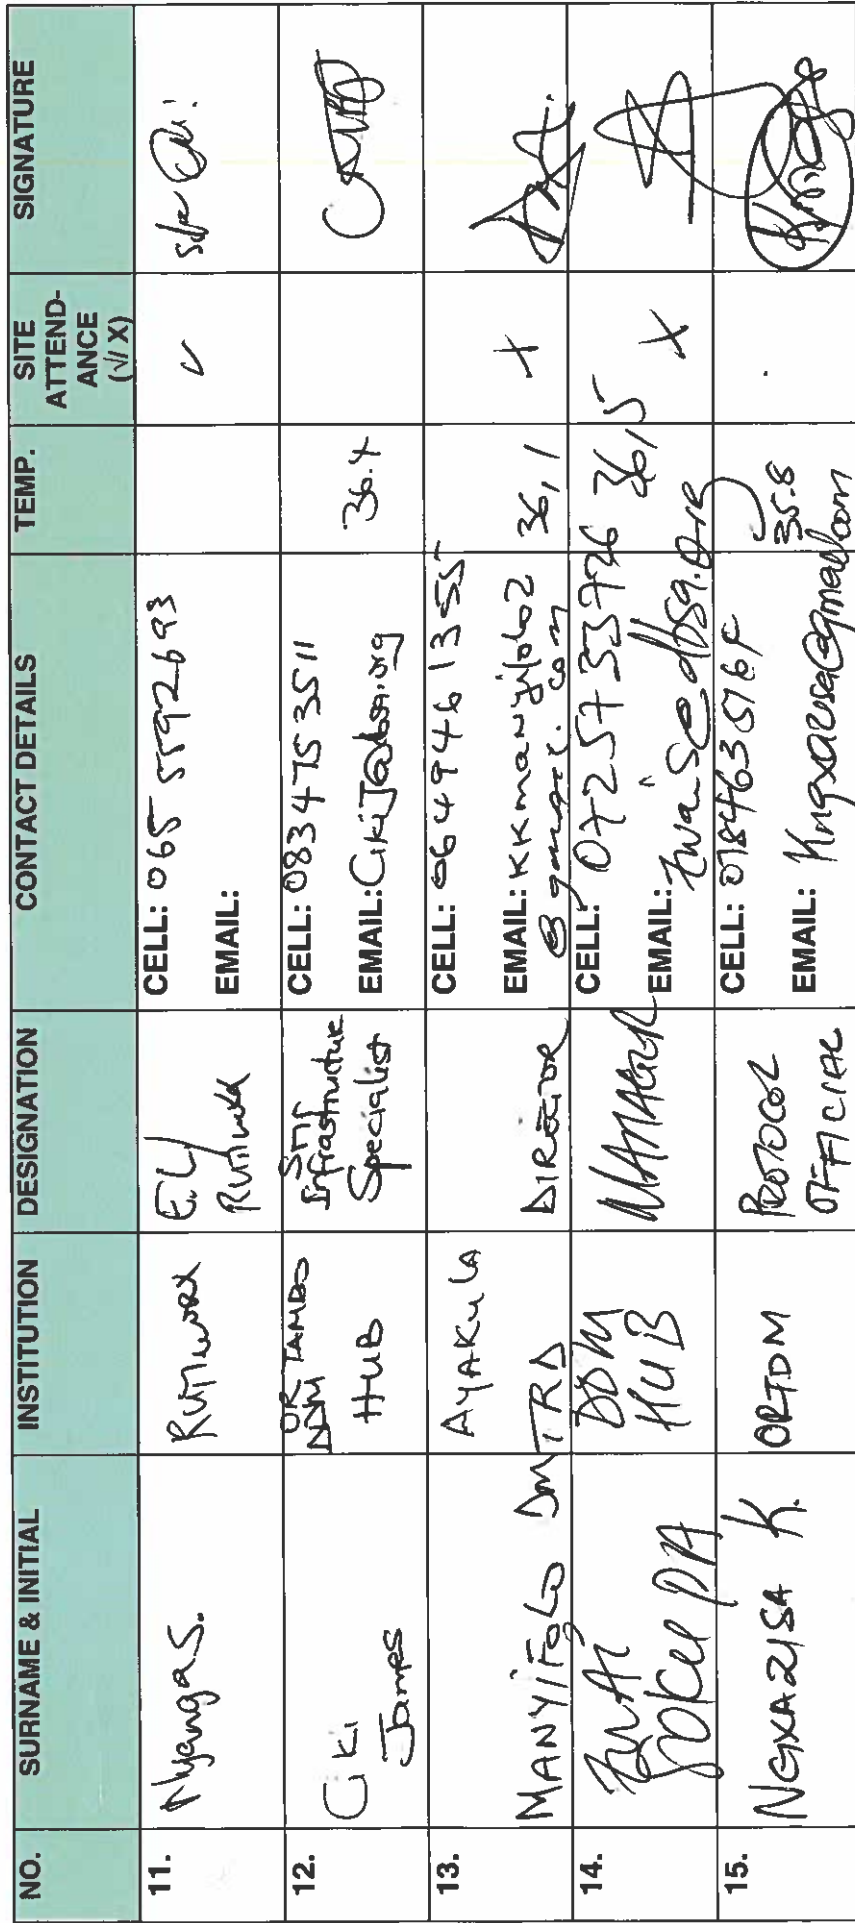 NO. SURNAME & INITIAL INSTITUTION DESIGNATION CONTACT DETAILS TEMP. SITE ATTEND-ANCE (√/ X) SIGNATURE
11. Nyanga S. EL CELL: 065 5592693
EMAIL:
12. Ciki James OR TAMBO DDM HUB Infrastructure Specialist CELL: 083 475 3511 36.4
EMAIL: CikiJ@dbsa.org
13. MANYIFOLO AYAKULA DIRECTOR CELL: 0649461355 36,1 X
EMAIL: kkmanyifolo2
@gmail.com
14. ZWAI SOKUPA DDM HUB MANAGER CELL: 0725733726 36,5 X
EMAIL: ZwaiS@dbsa.org
15. NGXAZISA K. ORTDM PROTOCOL OFFICIAL CELL: 35.8
EMAIL: Kngxazisa@gmail.com